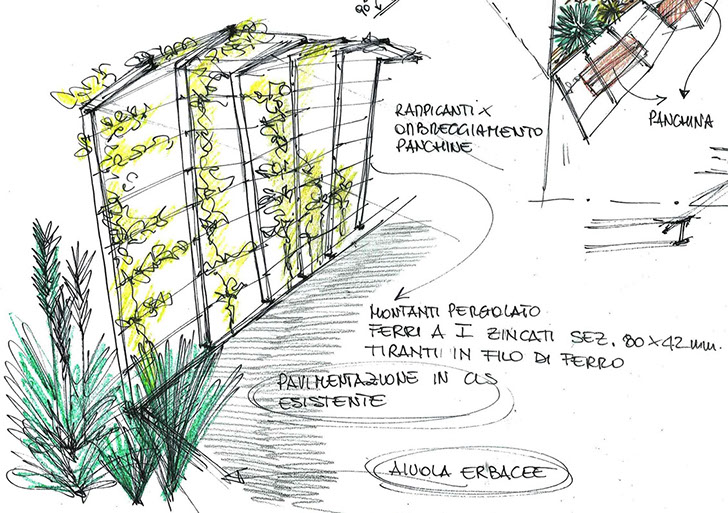 RAMPICANTI X
OMBREGGIAMENTO
PANCHINE
PANCHINA
MONTANTI PERGOLATO
FERRI A I ZINCATI SEZ. 80 X 42 mm.
TIRANTI IN FILO DI FERRO
PAVIMENTAZIONE IN CLS
ESISTENTE
AIUOLA ERBACEE